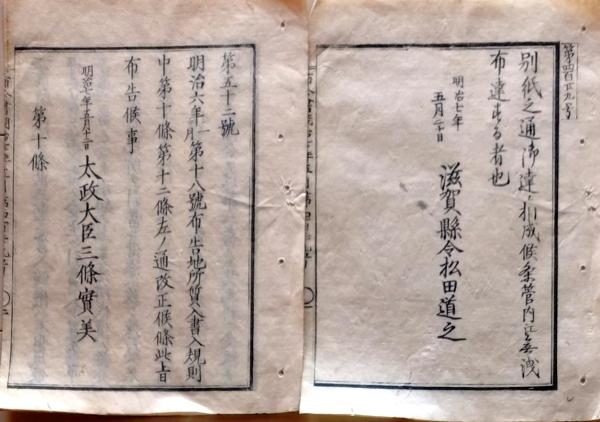 第四百廿九号
別紙之通御達ニ相成候条管内江無洩
布達する者也
明治七年
五月二十日
滋賀縣令松田道之
第五十二號
明治六年一月第十八號布告地所質入書入規則
中第十條第十二條左ノ通改正候條此旨
布告候事
明治七年五月十二日 太政大臣三條實美
第十條